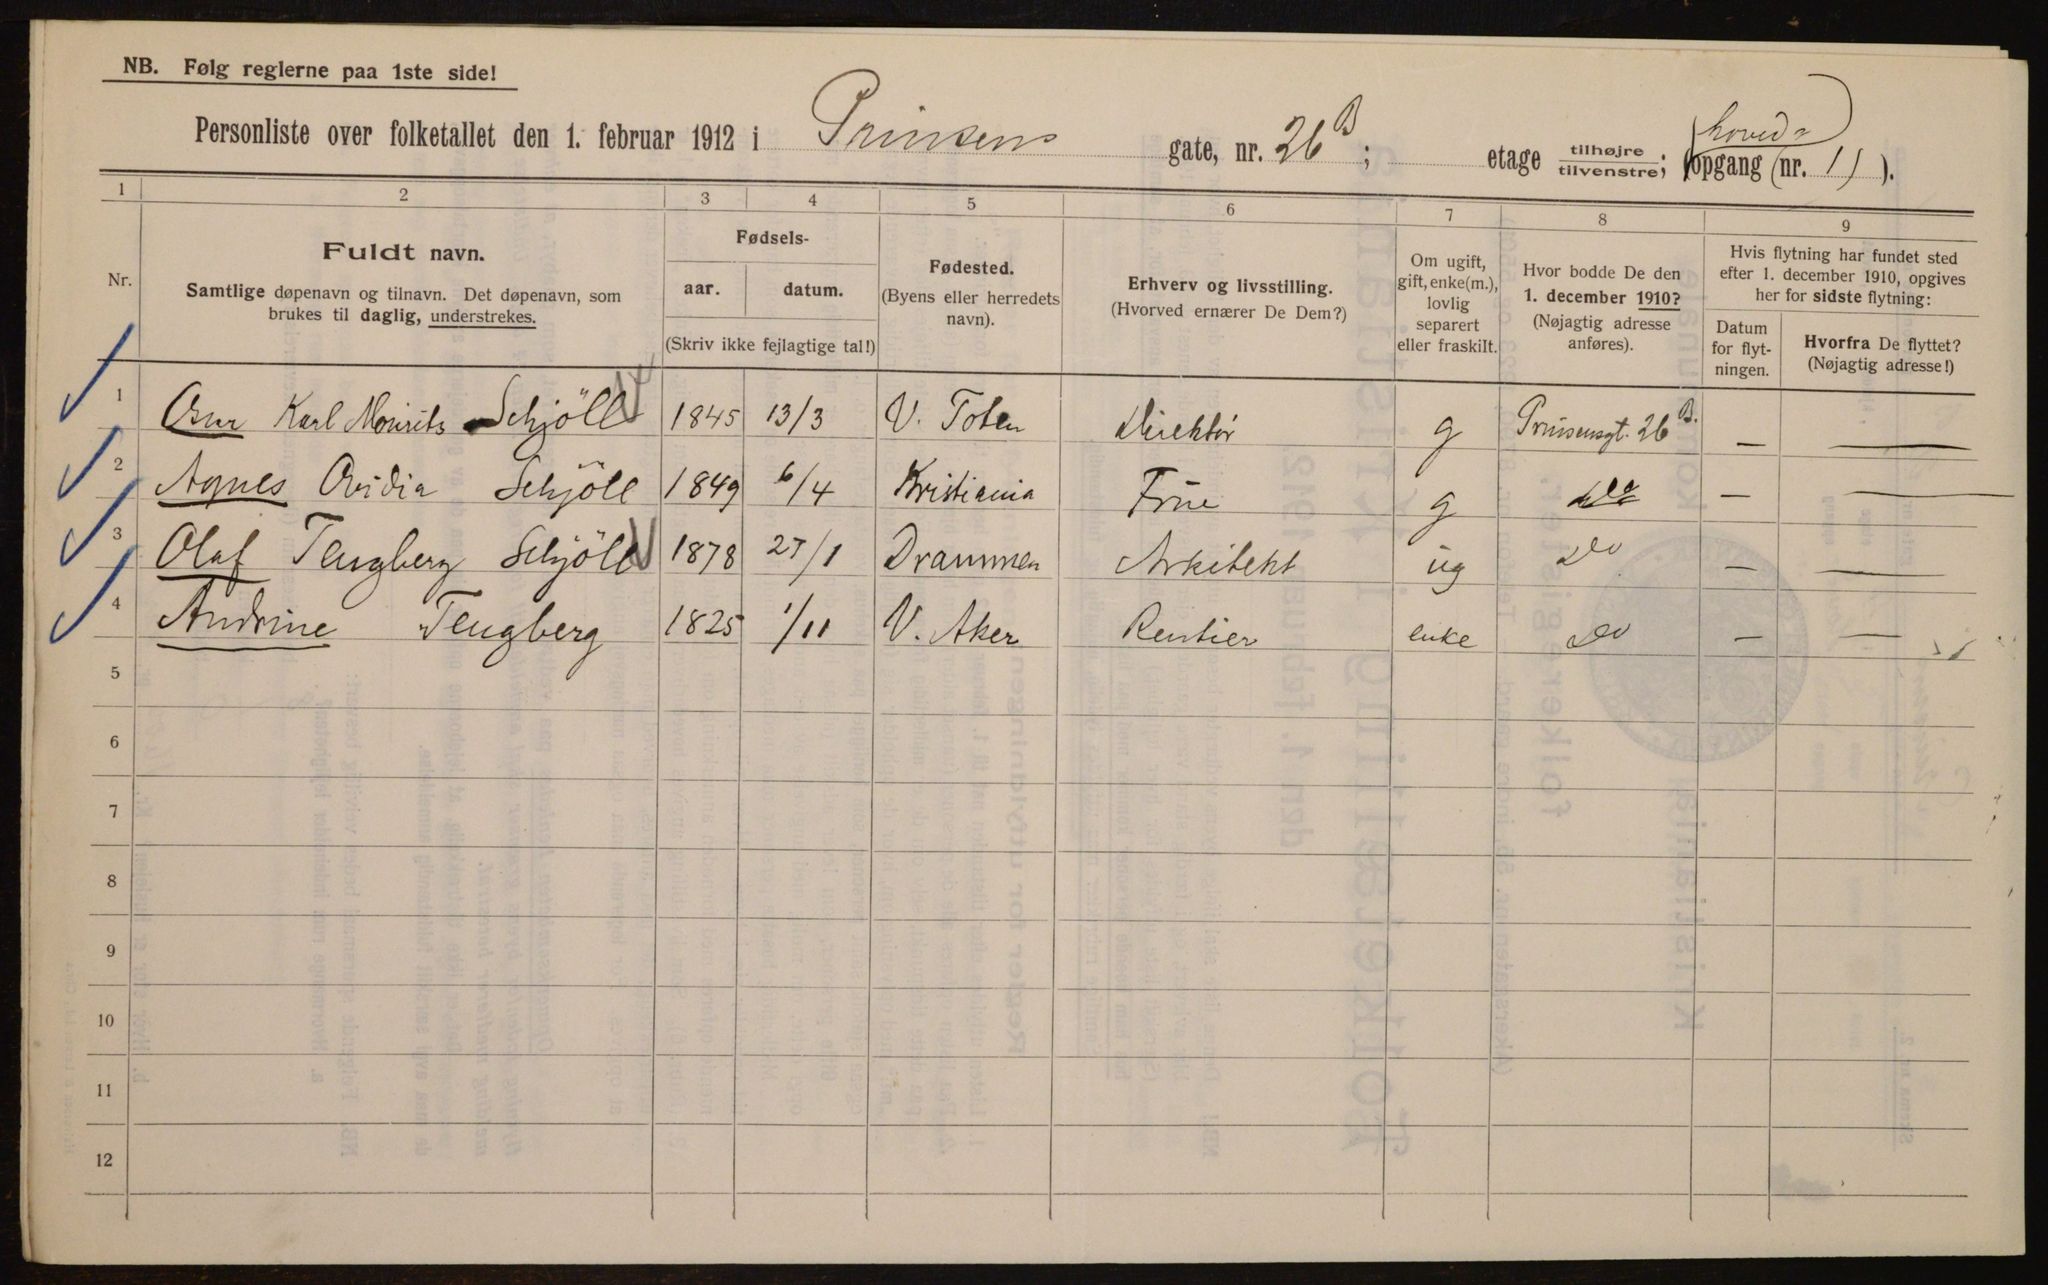 NB. Følg reglerne paa 1ste side!
hoved=
Personliste over folketallet den 1. februar 1912 i Prinsens gate, nr. 26 B; etage tilhøjre/tilvenstre; (opgang (nr. 1)).
1 2 3 4 5 6 7 8 9
Nr.
Fuldt navn.
Samtlige døpenavn og tilnavn. Det døpenavn, som
brukes til daglig, understrekes.
Fødsels-
aar. datum.
(Skriv ikke fejlagtige tal!)
Fødested.
(Byens eller herredets
navn).
Erhverv og livsstilling.
(Hvorved ernærer De Dem?)
Om ugift,
gift, enke(m.),
lovlig
separert
eller fraskilt.
Hvor bodde De den
1. december 1910?
(Nøjagtig adresse
anføres).
Hvis flytning har fundet sted
efter 1. december 1910, opgives
her for sidste flytning:
Datum
for flyt-
ningen.
Hvorfra De flyttet?
(Nøjagtig adresse!)
1 Karl Mourits Schjöll 1845 13/3 V. Toten Direktör g Prinsensgt. 26 B. — —
2 Agnes Ovidia Schjöll 1849 6/4 Kristiania Frue g do — —
3 Olaf Tengberg Schjöll 1878 27/1 Drammen Arkitekt ug Do — —
4 Andrine Tengberg 1825 1/11 V. Aker Rentier enke Do — —
5
6
7
8
9
10
11
12